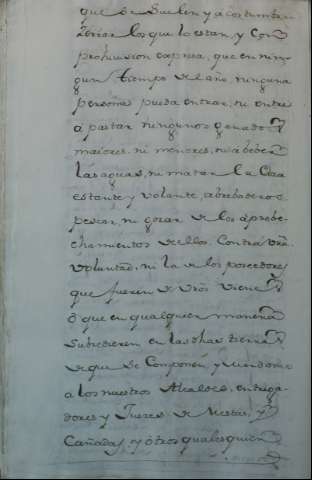 que se Suelen y acostumbran
Zerrar los que lo estan, y con
prohiuision expresa, que en nin-
gun tiempo del año, ninguna
persona pueda entrar, ni entre
a pastar ningunos ganados
maiores, ni menores, ni a beber
las aguas, ni matar la Caza
estante y volante, abrebaderos
pescar, ni gozar de los aprobe-
chamientos dellos, Contra vra.
voluntad, ni la de los poseedores
que fueren de vros viene
ô que en qualquier manera
Subcedieren en las dhas tierras
de que se Componen, y
a los nuestros Alcaldes, entrega-
dores y Jueces de Mestas, y
Cañadas y otros qualesquier